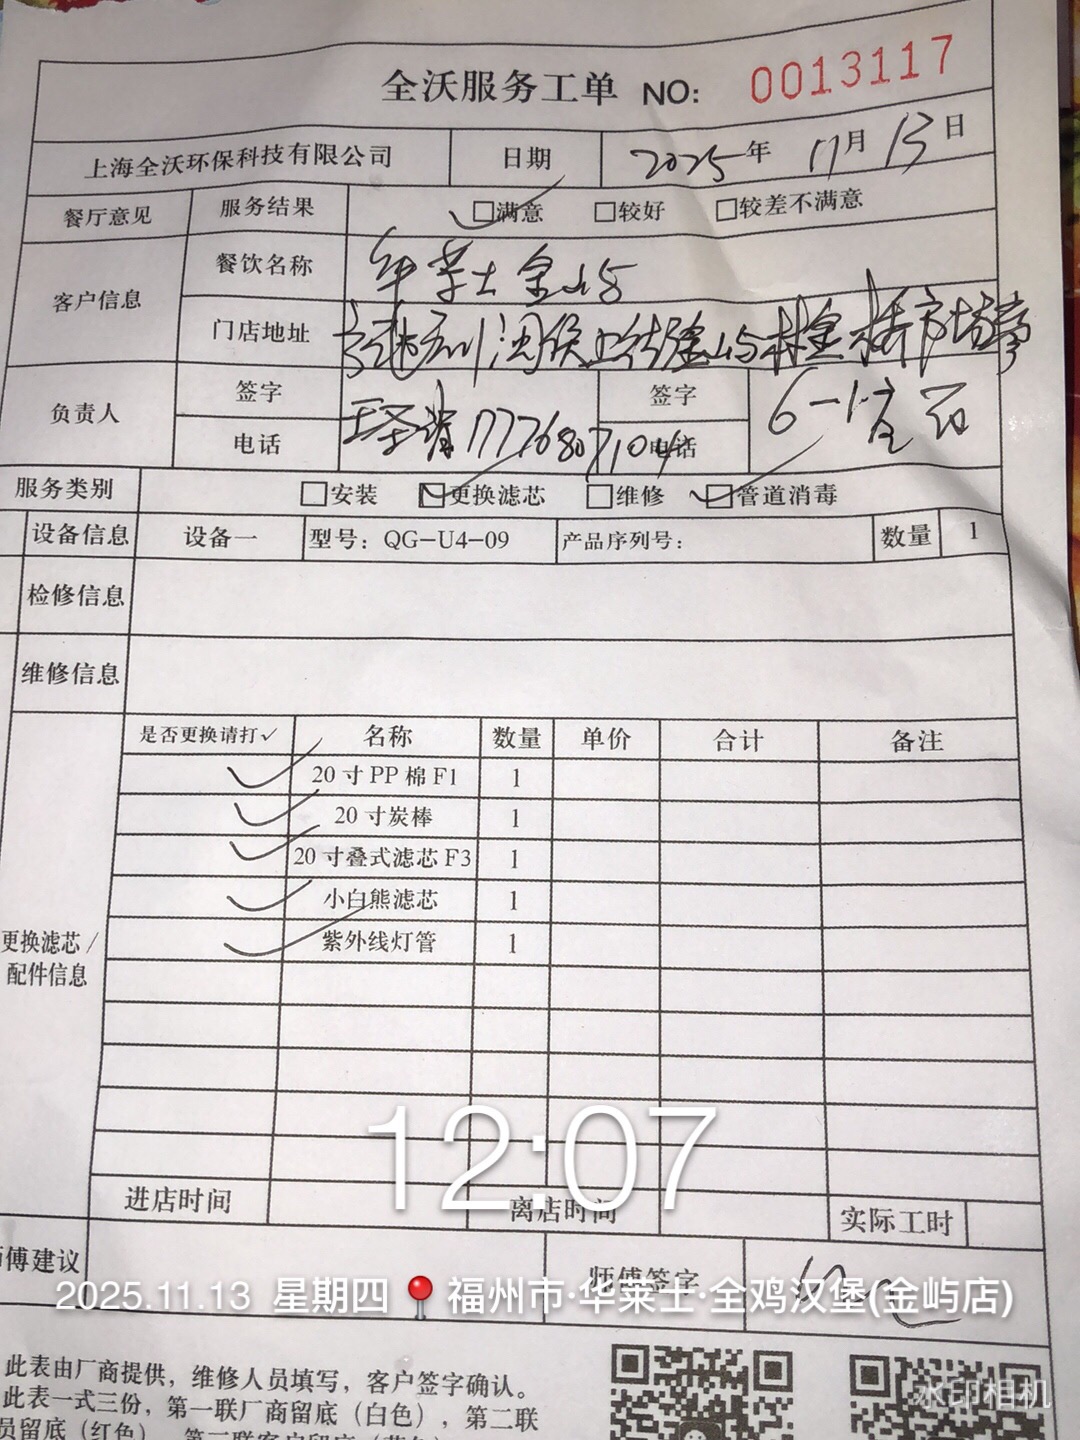 全沃服务工单 NO: 0013117
上海全沃环保科技有限公司 日期 2025年 11月 13日
餐厅意见 服务结果 ✓□满意 □较好 □较差不满意
客户信息 餐饮名称 华莱士金山屿
门店地址 福州闽侯上街金屿
负责人 签字 签字
电话 17776807104 电话 6-1
服务类别 □安装 ☑更换滤芯 □维修 ☑管道消毒
设备信息 设备一 型号：QG-U4-09 产品序列号： 数量 1
检修信息
维修信息
更换滤芯/配件信息
是否更换请打✓ 名称 数量 单价 合计 备注
✓ 20寸PP棉F1 1
✓ 20寸炭棒 1
✓ 20寸叠式滤芯F3 1
✓ 小白熊滤芯 1
✓ 紫外线灯管 1
12:07
进店时间 离店时间 实际工时
傅建议 师傅签字
2025.11.13 星期四 福州市·华莱士·全鸡汉堡(金屿店)
此表由厂商提供，维修人员填写，客户签字确认。
此表一式三份，第一联厂商留底（白色），第二联
员留底（红色），第三联客户留底（蓝色）
水印相机